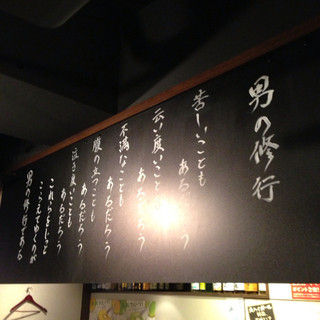 男の修行
苦しいことも
あるだろう
云い度いことも
あるだろう
不満なことも
あるだろう
腹の立つことも
あるだろう
泣き度いことも
あるだろう
これらをじっと
こらえてゆくのが
男の修行である